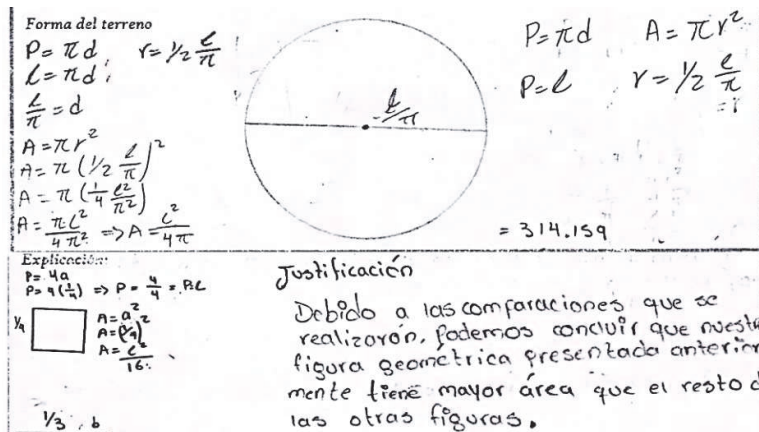 Forma del terreno
P = πd   r = 1/2 ℓ/π
ℓ = πd
ℓ/π = d
A = πr²
A = π (1/2 ℓ/π)²
A = π (1/4 ℓ²/π²)
A = πℓ²/4π² => A = ℓ²/4π
ℓ/π
P = πd   A = πr²
P = ℓ   r = 1/2 ℓ/π
= 314.159
Explicación:
P = 4a
=> P = 4/4 = P = ℓ
A = a²
A = ℓ²/16
Justificación
Debido a las comparaciones que se
realizarón, podemos concluir que nuestra
figura geométrica presentada anterior
mente tiene mayor área que el resto d
las otras figuras.
1/3   b